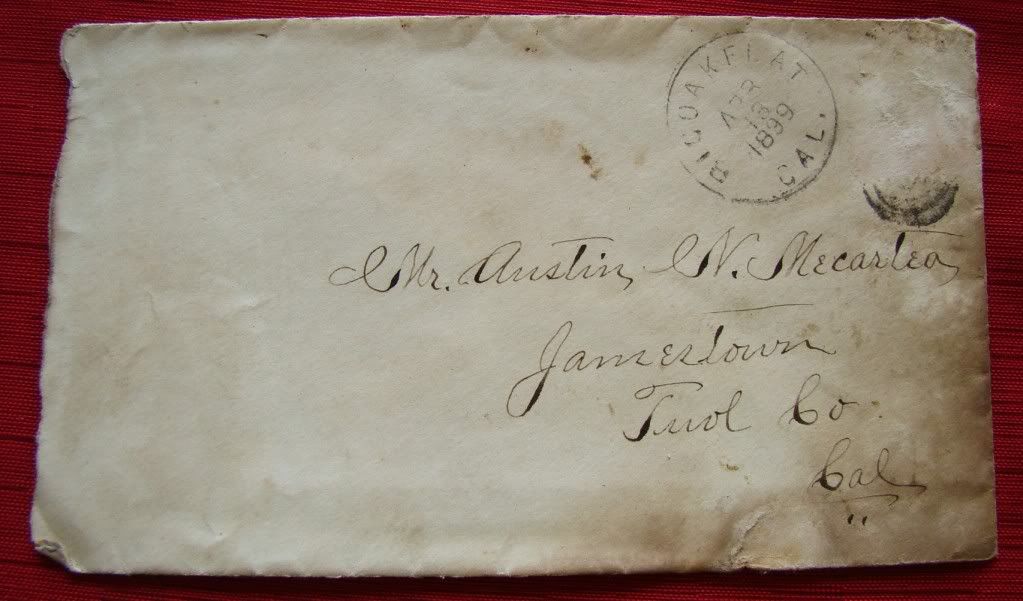 BIG OAK FLAT
CAL.
APR
18
1899
Mr. Austin N. Mecartea
Jamestown
Tuol Co
Cal